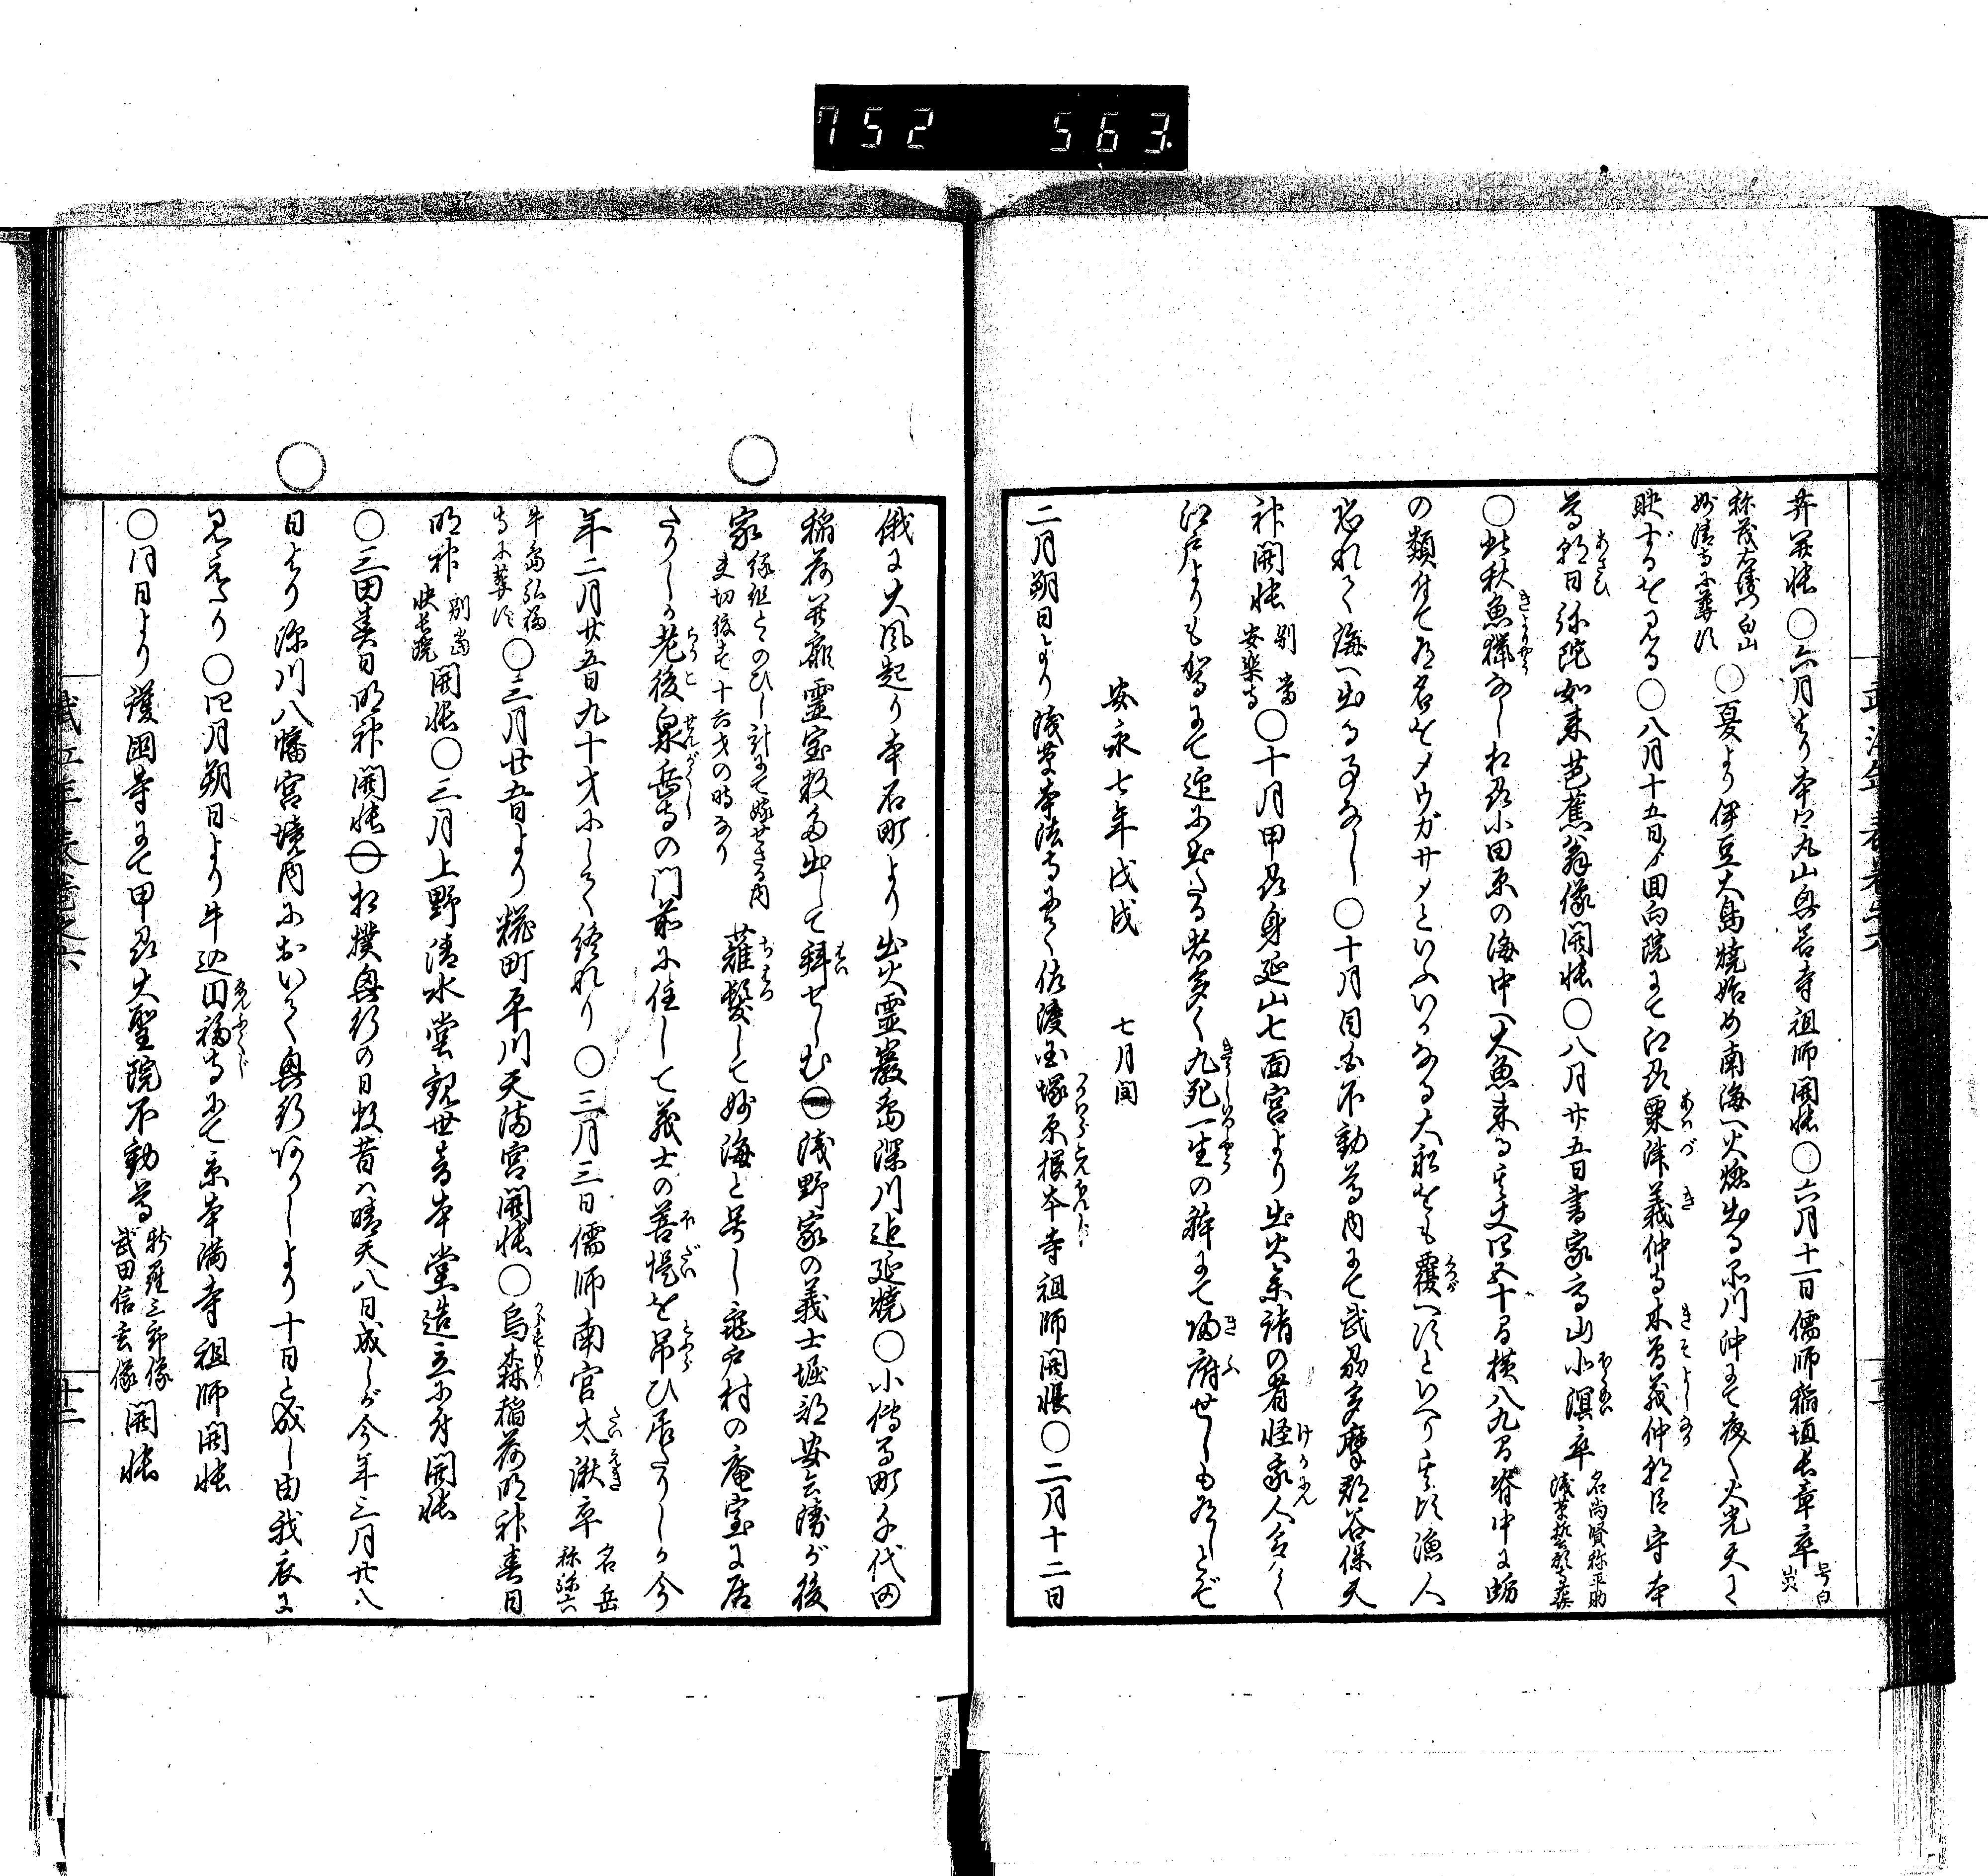 752 563
弁開帳〇六月より本所丸山興善寺祖師開帳〇六月十一日儒師稲垣長章卒 号白嵓
称茂右衛門白山妙清寺に葬す〇夏より伊豆大島焼始め南海へ火燃出る品川沖にて夜〻火光天に
映ずるを見る〇八月十五日より回向院にて江州粟津義仲寺木曽義仲朝臣守本
尊朝日弥陀如来芭蕉翁像開帳〇八月廿五日書家高山小溟卒 名尚賢称平助浅草誓願寺葬
〇此秋魚猟なし相州小田原の海中へ大魚来る其丈四五十間横八九間脊中に蛎
の類付て名をタウガサメといふいかなる大船をも覆へすといへり其頃漁人
恐れて海へ出る事なし〇十月目白不動尊内にて武州多摩郡谷保天
神開帳 別当安楽寺〇十月甲州身延山七面宮より出火参詣の者怪我人多く
江戸よりも駕にて迎に出る者多く九死一生の躰にて帰府せしも有しとぞ
安永七年戊戌 七月閏
二月朔日より浅草本法寺にて佐渡国塚原根本寺祖師開帳〇二月十二日
俄に大風起り本石町より出火霊巌島深川迄延焼〇小伝馬町千代田
稲荷開扉霊宝数多出して拝せしむ〇浅野家の義士堀部安兵衛が後
家 縁組とゝのひし計にて嫁せざる内夫切腹す十六才の時なり 薙髪して妙海と号し亀戸村の庵室に居
たりしが老後泉岳寺の門前に住して義士の菩提を吊ひ居たりしが今
年二月廿五日九十才にして終れり〇三月三日儒師南宮大湫卒 名岳称弥六
牛島弘福寺に葬す〇三月廿五日より糀町平川天満宮開帳〇烏森稲荷明神春日
明神 別当快長院 開帳〇三月上野清水堂観世音本堂造立に付開帳
〇三田春日明神開帳〇相撲興行の日数昔ハ晴天八日成しが今年三月廿八
日より深川八幡宮境内において興行ありしより十日と成し由我衣に
見えたり〇四月朔日より牛込円福寺にて京本満寺祖師開帳
〇同日より護国寺にて甲州大聖院不動尊 新羅三郎像武田信玄像 開帳
武江年表巻之六
廿二